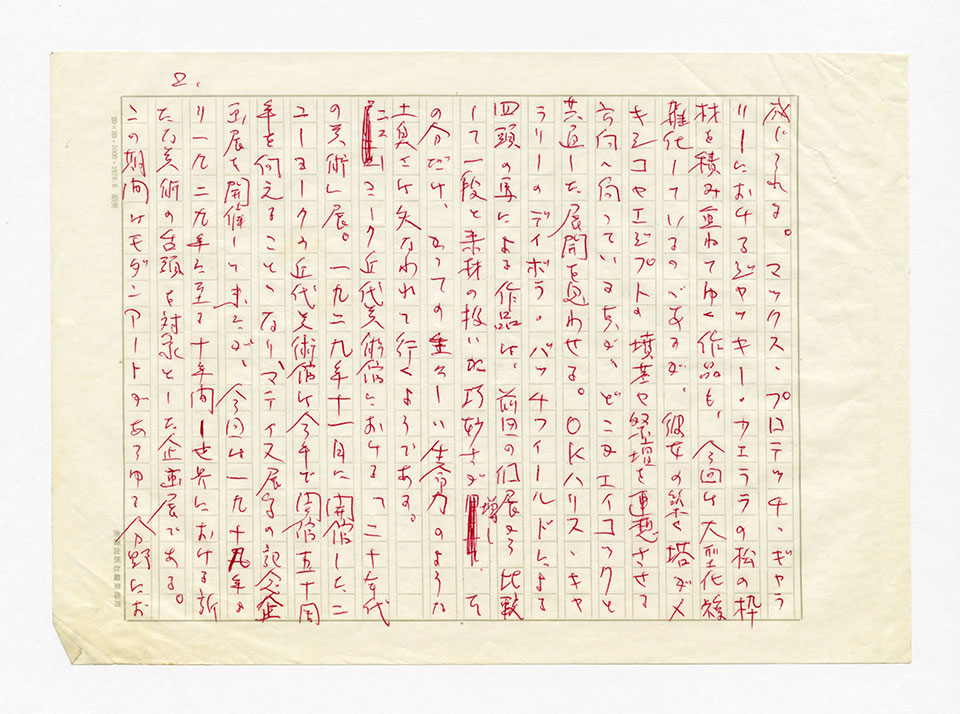 2.
感じられる。マックス、プロテッチ、ギャラ
リーにおけるジャッキー・フェララの松の枠
材を積み重ねてゆく作品も、今回は大型化複
雑化しているのであるが、彼女の築く塔がメ
キシコやエジプトの墳墓や祭壇を連想させる
方向へ向っている点が、どこかエイコックと
共通した展開を思わせる。OKハリス、ギャ
ラリーのディボラ・バッチフィールドによる
四頭の馬による作品は、前回の個展より比較
して一段と素材の扱いが巧妙さが増して、そ
の分だけ、かっての重々しい生命力のような
土臭さは失なわれて行くようである。
ニューヨーク近代美術館における「二十年代
の美術」展。一九二九年十一月に開館したニ
ューヨークの近代美術館は今年で開館五十周
年を伺えることゝなり、マティス展等の記念企
画展を開催して来たが、今回は一九一九年よ
り一九二九年に至る十年間ー世界における新
たな美術の台頭を対象とした企画展である。
この期間はモダンアートがあらゆる分野にお
20×20・1000・1978・6
美術出版社編集部用